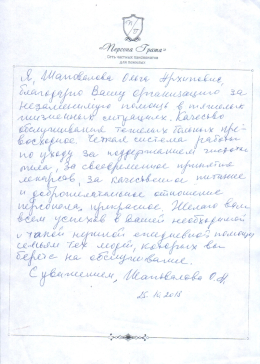 «Персона Грата»
Сеть частных пансионатов
для пожилых
Я, Шаповалова Ольга Архиповна,
благодарю Вашу организацию за
незаменимую помощь в тяжелых
жизненных ситуациях. Качество
обслуживания тяжелых больных пре-
восходное. Четкая система работы
по уходу за поддержанием чистоты
тела, за своевременное принятие
лекарств, за качественное питание
и доброжелательное отношение
персонала, прекрасное. Желаю вам
всем успехов в вашей необходимой
и такой нужной ежедневной помощи
семьям тех людей, которых вы
берете на обслуживание.
С уважением, Шаповалова О.А.
25.10.2015